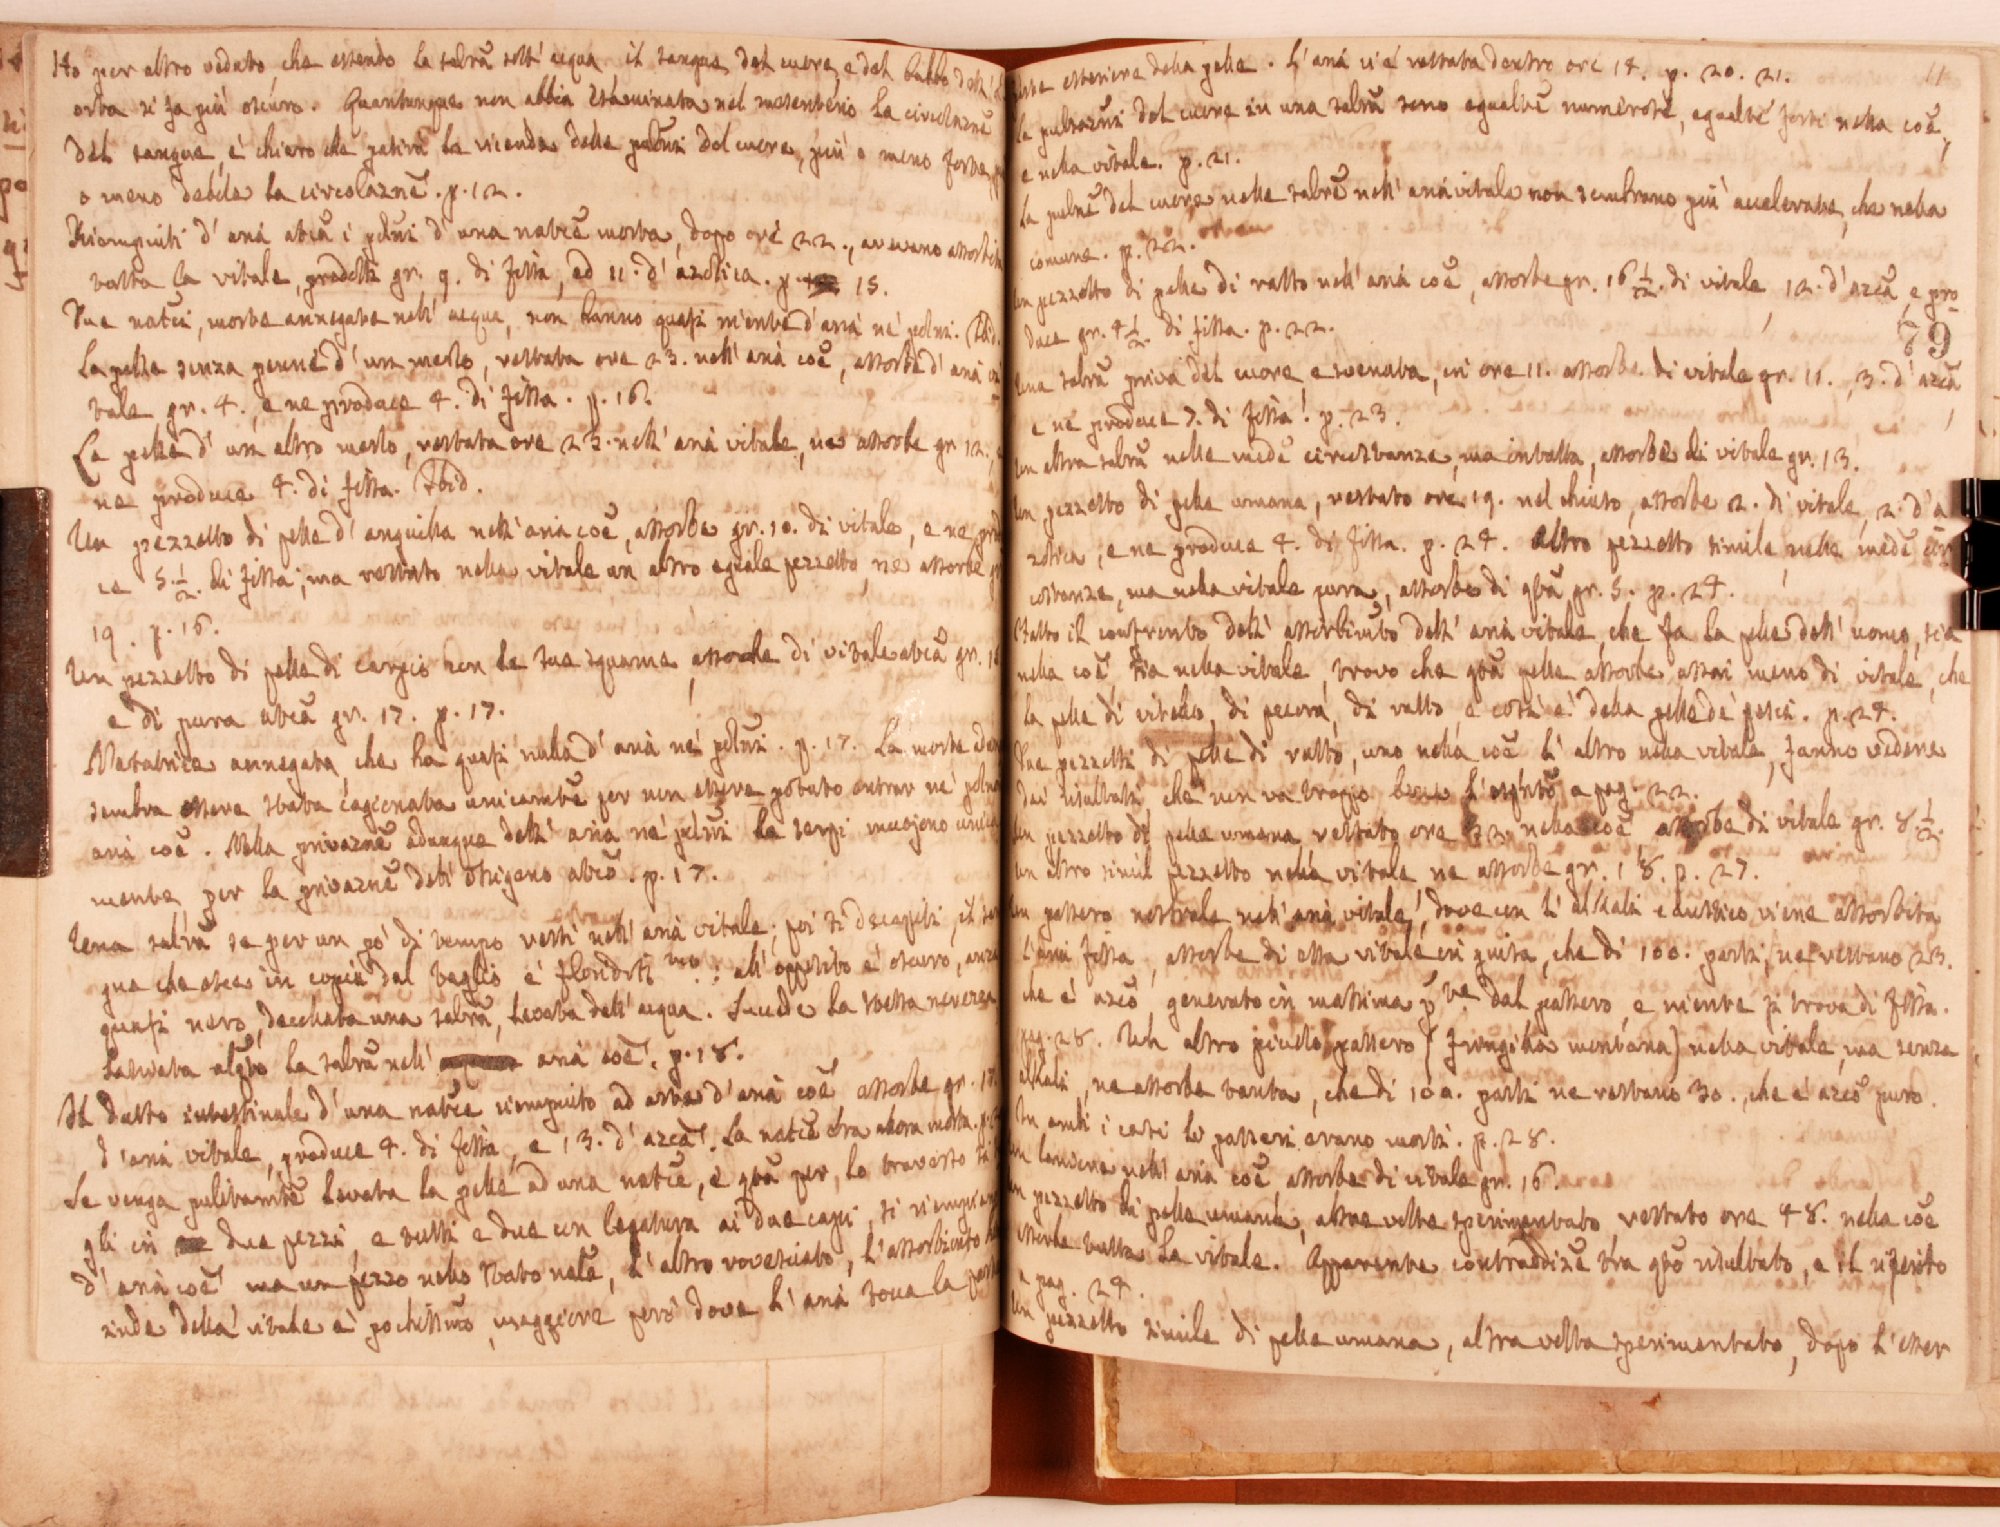 Ho per altro veduto, che essendo la salrã sott' acqua il sangue del cuore, e del bulbo dell'
orta si fa più oscuro. Quantunque non abbia esaminata nel mesenterio la circolaznẽ
del sangue, è chiaro che patirà la vicenda delle pulsũzi del cuore, più o meno forte,
o meno debole la circolaznẽ. p. 12.
Riempiuti d' aria atcã i polmi d' una natcẽ morta, dopo ore 22., avevano assorbita
tutta la vitale, prodotti gr. 9. di fissa, ed 11. d' azotica. p. 15.
Due natci, morte annegate nell' acqua, non hanno quasi niente d' aria ne' polmi. Ibid.
La pelle senza penne d' un merlo, restata ore 23. nell' aria coẽ, assorbe d' aria vi
tale gr. 4. e ne produce 4. di fissa. p. 16.
La pelle d' un altro merlo, restata ore 23. nell' aria vitale, ne assorbe gr. 12., e
ne produce 4. di fissa. Ibid.
Un pezzetto di pelle d' anguilla nell' aria coẽ, assorbe gr. 10. di vitale, e ne prod
ce 5 1/2. di fissa; ma restato nella vitale un altro eguale pezzetto, ne assorbe gr
19. p. 16.
Un pezzetto di pelle di carpio con le sue squame, assorbe di vitale atcã gr. 16
e di pura atcã gr. 17. p. 17.
Natatrice annegata, che ha quasi nulla d' aria ne' polmi. p. 17. La morte adun
sembra essere stata cagionata unicamtẽ per non essere potuto entrar ne' polmi
aria coẽ. Nella privaznẽ adunque dell' aria ne' polmi le serpi muojono unica
mente per la privaznẽ dell' ossigeno atcõ. p. 17.
Una salrã se per un po' di tempo resti nell' aria vitale; poi si decapiti, il san
gue che esce in copia dal taglio è floridissmo: all' opposito è oscuro, anzi
quasi nero, decollata una salrã, levata dall' acqua. Succede la stessa nerezza
lasciata alqto la salrã nell' aria coẽ. p. 18.
Il dutto intestinale d' una natcẽ riempiuto ad arte d' aria coẽ assorbe gr. 17.
d' aria vitale, produce 4. di fissa, e 13. d' azcã. La natcẽ era allora morta.
Se venga pulitamtẽ levata la pelle ad una natcẽ, e qtã per lo traverso si ta
gli in due pezzi, e tutti e due con legatura ai due capi, si riempiano
d' aria coẽ ma un pezzo nello stato nalẽ, l' altro rovesciato, l' assorbimto
zinde della vitale è pochissmo, maggiore però dove l' aria tocca la parte
parte esteriore della pelle. L' aria vi è restata dentro ore 14. p. 20. 21.
Le pulsazñi del cuore in una salrã sono egualmtẽ numerose, egualmtẽ forti nella coẽ,
e nella vitale. p. 21.
Le pulsnẽ del cuore nelle salrẽ nell' aria vitale non sembrano più accelerate, che nella
comune. p. 22.
Un pezzetto di pelle di ratto nell' aria coẽ, assorbe gr. 16 1/2. di vitale, 12. d' azcã, e pro
duce gr. 4 1/2. di fissa. p. 22.
79
Una salrã priva del cuore, e svenata, in ore 11. assorbe di vitale gr. 11., 3. d' azcã
e ne produce 7. di fissa. p. 23.
Un altra salrã nelle medẽ circostanze, ma intatta, assorbe di vitale gr. 13.
Un pezzetto di pelle umana, restato ore 19. nel chiuso, assorbe 2. di vitale, 2. d' a
zotica, e ne produce 4. di fissa. p. 24. Altro pezzetto simile, nelle medẽ cir
costanze, ma nella vitale pura, assorbe di qtã gr. 5. p. 24.
Fatto il confronto dell' assorbimto dell' aria vitale, che fa la pelle dell' uomo, sia
nella coẽ, sia nella vitale, trovo che qtã pelle assorbe assai meno di vitale, che
la pelle di vitello, di pecora, di ratto, e così è della pelle de' pesci. p. 24.
Due pezzetti di pelle di ratto, uno nella coẽ l' altro nella vitale, fanno vedere
dai risultati, che non va troppo bene l' esptõ a pag. 22.
Un pezzetto di pelle umana restato ore 22. nella coẽ assorbe di vitale gr. 8 1/2.
Un altro simil pezzetto nella vitale ne assorbe gr. 18. p. 27.
Un passero nostrale nell' aria vitale, dove con l' alkali caustico viene assorbita
l' aria fissa, assorbe di essa vitale in guisa, che di 100. parti, ne restano 23.
che è azcõ, generato in massima pte dal passero, e niente si trova di fissa.
pag. 28. Un altro picciolo passero (fringilla montana) nella vitale, ma senza
alkali, ne assorbe tanta, che di 100. parti ne restano 30., che è azcõ puro.
In ambi i casi le passeri erano morti. p. 28.
Un lanione nell' aria coẽ assorbe di vitale gr. 16.
Un pezzetto di pelle umana, altre volte sperimentato restato ore 48. nella coẽ
assorbe tutta la vitale. Apparente contraddizẽ tra qtõ risultato, e il riferito
a pag. 24.
Un pezzetto simile di pelle umana, altra volta sperimentato, dopo l' esser